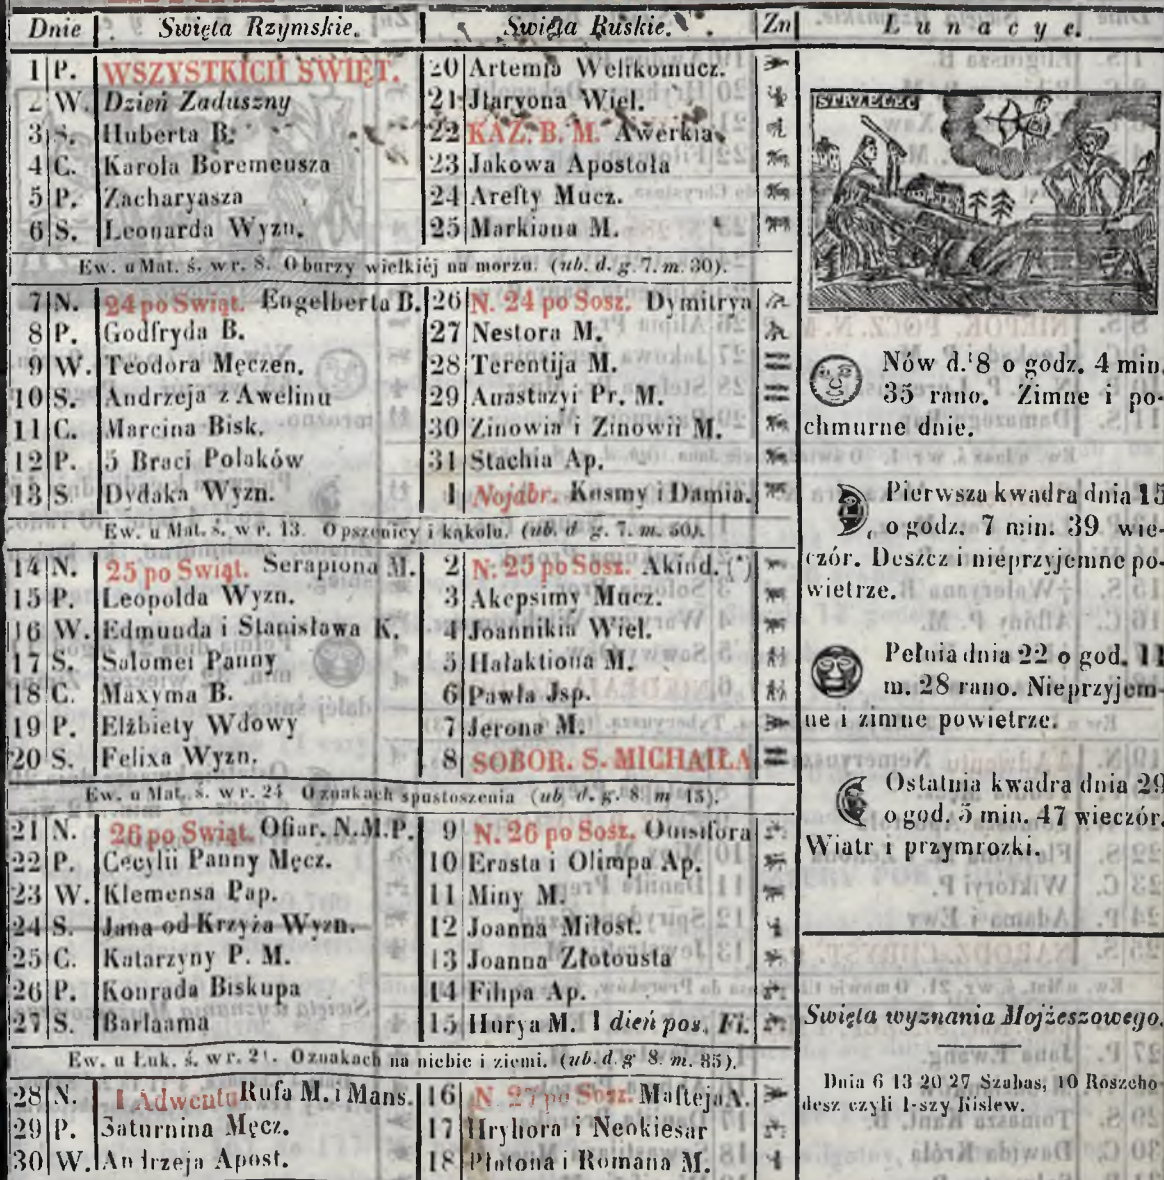 Dnie Święta Rzymskie. Święta Ruskie. Zn Lunacye.
1 P. WSZYSTKICH ŚWIĘT. 20 Artemia Welikomucz.
2 W. Dzień Zaduszny 21 Jlaryona Wiel.
3 S. Huberta B. 22 KAZ. B. M. Awerkia
4 C. Karola Boremeusza 23 Jakowa Apostoła
5 P. Zacharyasza 24 Arefty Mucz.
6 S. Leonarda Wyzn. 25 Markiana M.
Ew. u Mat. ś. w r. 8. O burzy wielkiéj na morzu. (ub. d. g. 7. m. 30).
7 N. 24 po Świąt. Engelberta B. 26 N. 24 po Sosz. Dymitrya
8 P. Godfryda B. 27 Nestora M.
9 W. Teodora Męczen. 28 Terentija M.
10 S. Andrzeja z Awelinu 29 Anastazyi Pr. M.
11 C. Marcina Bisk. 30 Zinowia i Zinowii M.
12 P. 5 Braci Polaków 31 Stachia Ap.
13 S. Dydaka Wyzn. 1 Nojabr. Kosmy i Damia.
Ew. u Mat. ś. w r. 13. O pszenicy i kąkolu. (ub. d. g. 7. m. 50).
14 N. 25 po Świąt. Serapiona M. 2 N. 25 po Sosz. Akind. (*)
15 P. Leopolda Wyzn. 3 Akepsimy Mucz.
16 W. Edmunda i Stanisława K. 4 Joannikia Wiel.
17 S. Salomei Panny 5 Hałaktiona M.
18 C. Maxyma B. 6 Pawła Jsp.
19 P. Elżbiety Wdowy 7 Jerona M.
20 S. Felixa Wyzn. 8 SOBOR. S. MICHAIŁA
Ew. u Mat. ś. w r. 24 O znakach spustoszenia (ub. d. g. 8. m 15).
21 N. 26 po Świąt. Ofiar. N.M.P. 9 N. 26 po Sosz. Onisifora
22 P. Cecylii Panny Męcz. 10 Erasta i Olimpa Ap.
23 W. Klemensa Pap. 11 Miny M.
24 S. Jana od Krzyża Wyzn. 12 Joanna Miłost.
25 C. Katarzyny P. M. 13 Joanna Złotousta
26 P. Konrada Biskupa 14 Filipa Ap.
27 S. Barlaama 15 Hurya M. 1 dień pos. Fi.
Ew. u Łuk. ś. w r. 21. O znakach na niebie i ziemi. (ub. d. g 8. m. 35).
28 N. 1 Adwentu Rufa M. i Mans. 16 N 27 po Sosz. Mafteja A.
29 P. Saturnina Męcz. 17 Hryhora i Neokiesar
30 W. Andrzeja Apost. 18 Płatona i Romana M.
STRZELEC
Nów d. 8 o godz. 4 min.
35 rano. Zimne i po-
chmurne dnie.
Pierwsza kwadra dnia 15
o godz. 7 min. 39 wie-
czór. Deszcz i nieprzyjemne po-
wietrze.
Pełnia dnia 22 o god. 11
m. 28 rano. Nieprzyjem-
ne i zimne powietrze.
Ostatnia kwadra dnia 29
o god. 5 min. 47 wieczór.
Wiatr i przymrozki.
Święta wyznania Mojżeszowego.
Dnia 6 13 20 27 Szabas, 10 Roszcho-
desz czyli 1-szy Kislew.